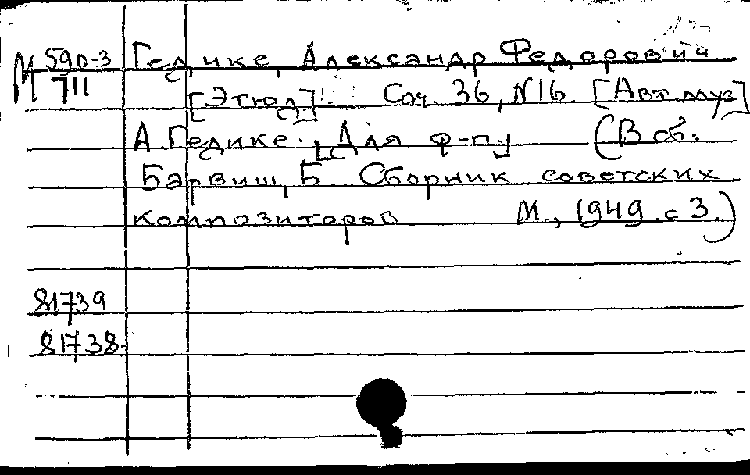 М 590-3 Гедике, Александр Федорович
711
[Этюд] Соч 36, N16. [Авт. муз]
А. Гедике. [Для ф-п] (В сб.
Барвиш, Б. Сборник советских
композиторов М., 1949. с 3.)
81739
81738